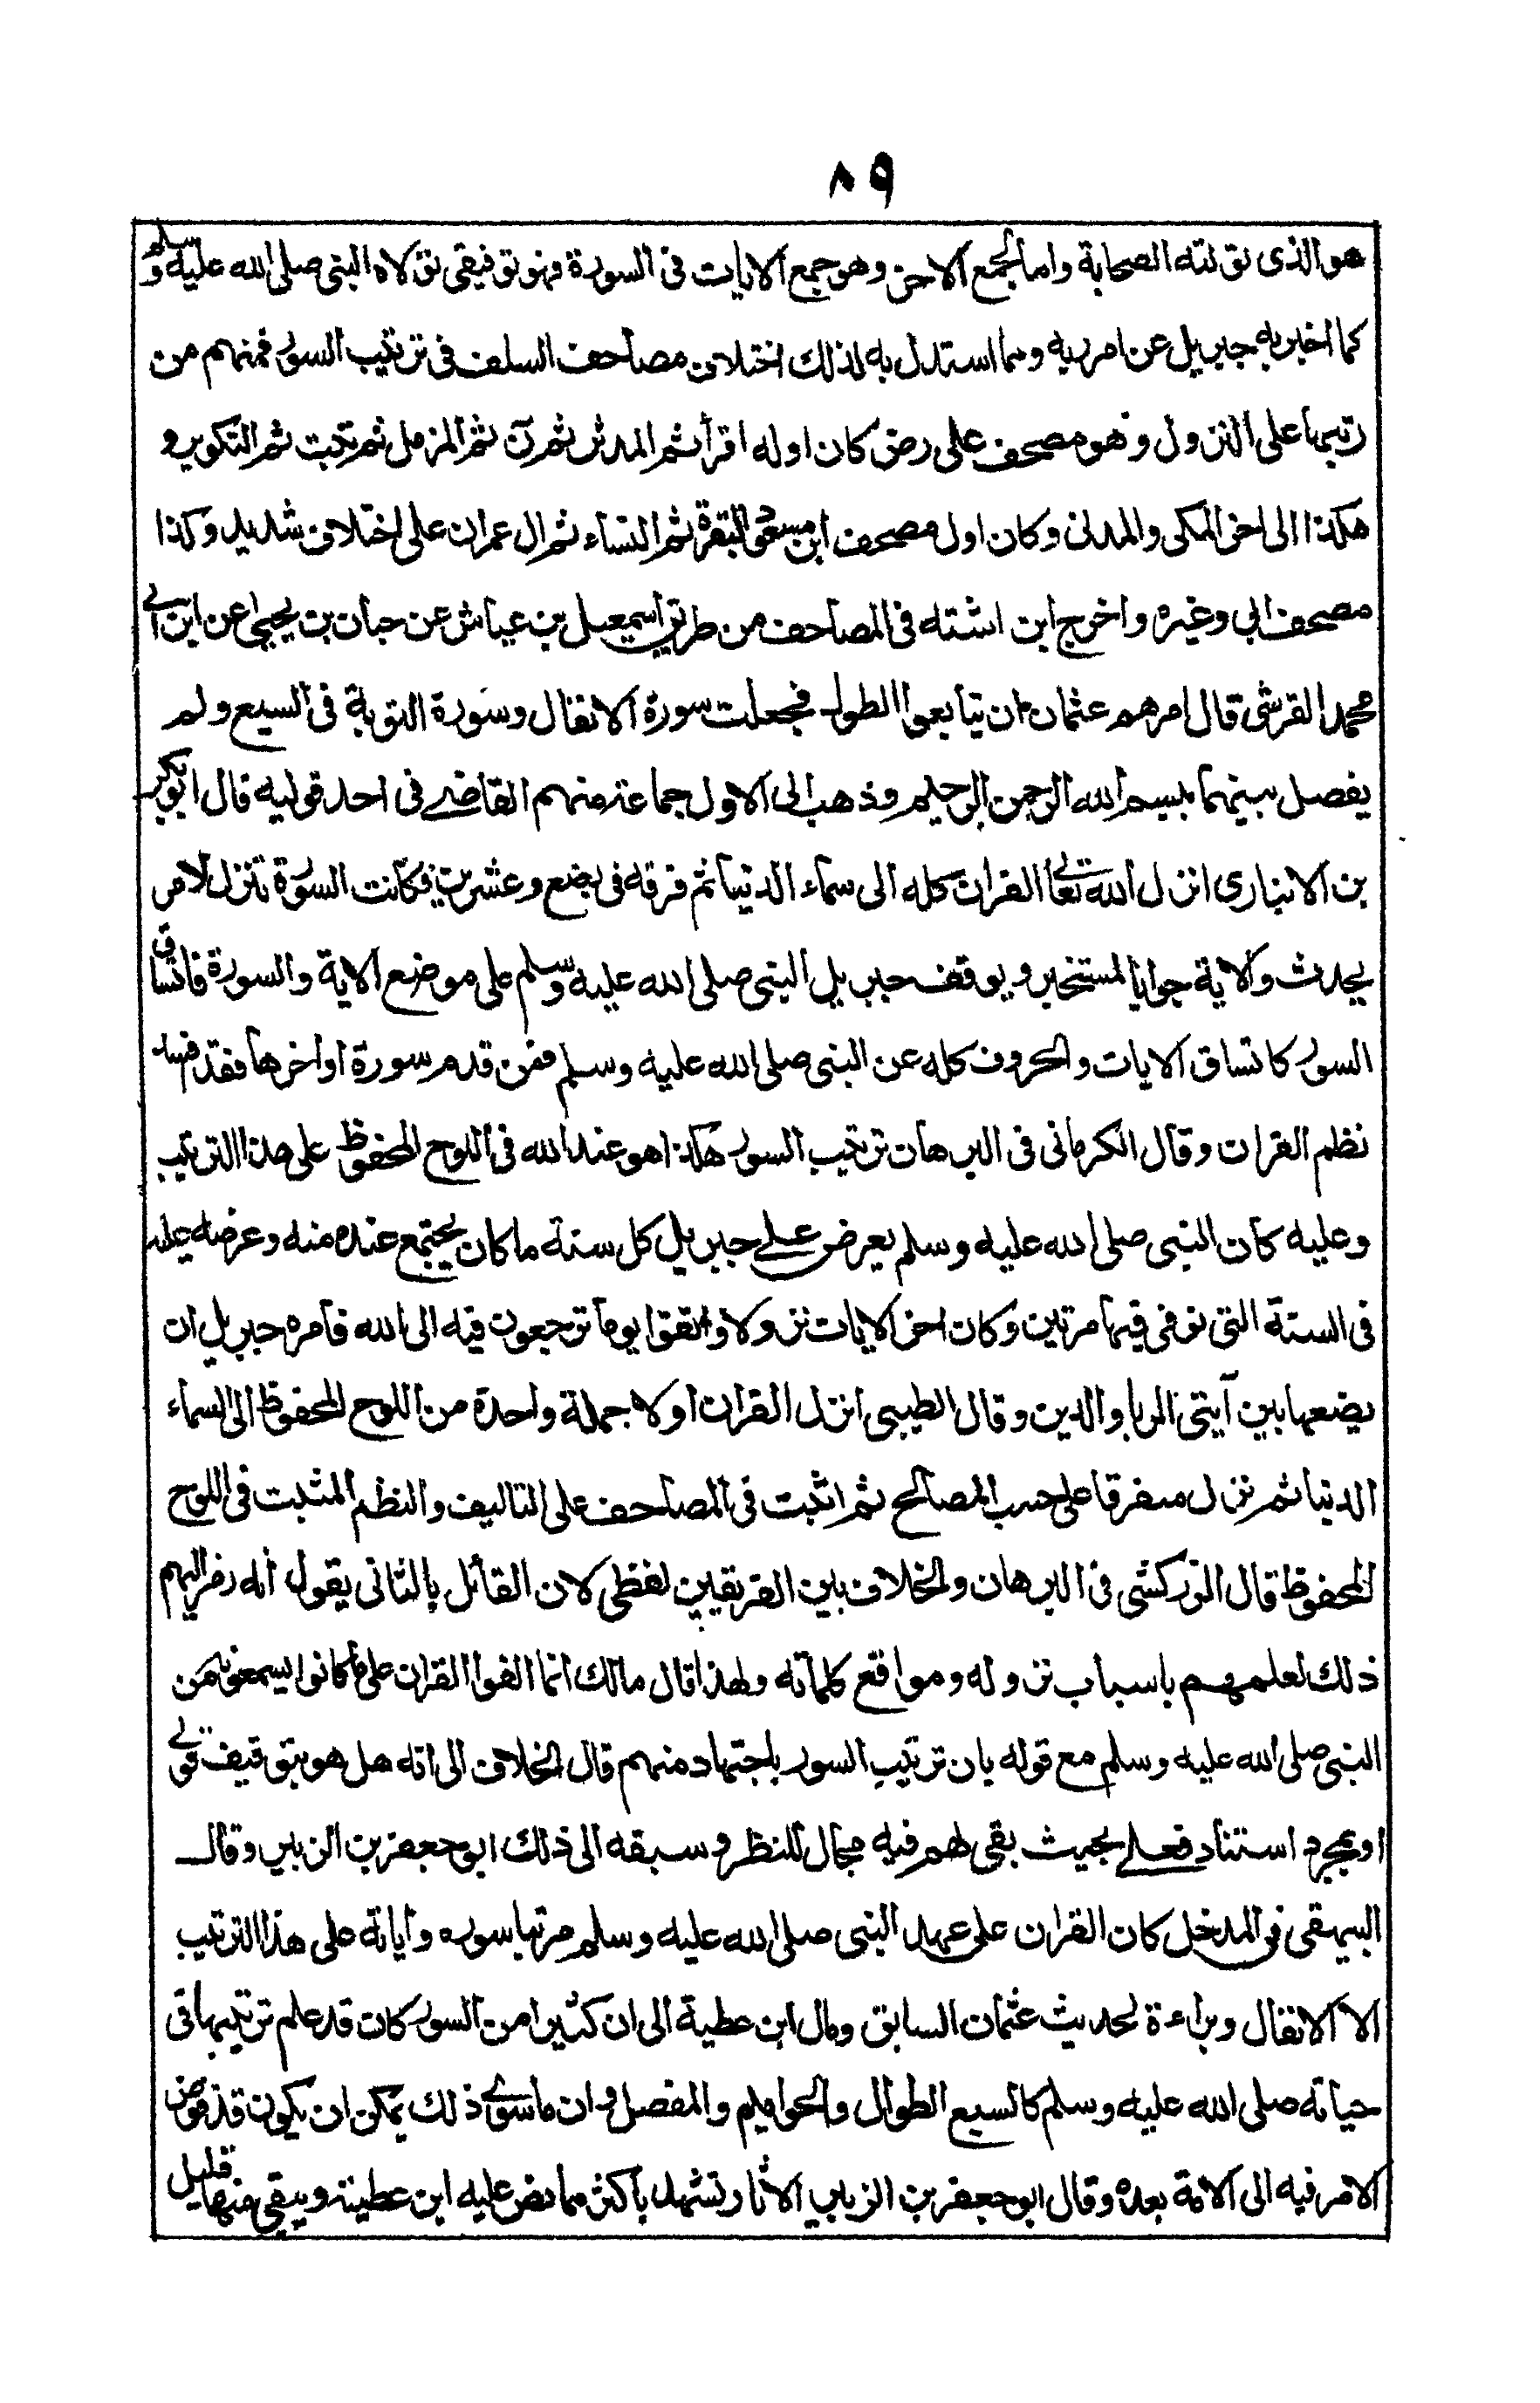 ٨٩
هو الذى تولته الصحابة واما الجمع الاخر وهو جمع الايات فى السورة فهو توقيفى تولاه النبى صلى الله عليه وسلم
كما اخبر به جبريل عن امر ربه ومما استدل به لذلك اختلاف مصاحف السلف فى ترتيب السور فمنهم من
رتبها على النزول وهو مصحف على رض كان اوله اقرأ ثم المدثر ثم ن ثم المزمل ثم تبت ثم التكوير و
هكذا الى اخر المكى والمدنى وكان اول مصحف ابن مسعود البقرة ثم النساء ثم ال عمران على اختلاف شديد وكذا
مصحف ابى وغيره واخرج ابن اشته فى المصاحف من طريق اسمعيل بن عياش عن حبان بن يحيى عن ابى
محمد القرشى قال امرهم عثمان ان يتابعوا الطول فجعلت سورة الانفال وسورة التوبة فى السبع ولم
يفصل بينهما ببسم الله الرحمن الرحيم وذهب الى الاول جماعة منهم القاضے فى احد قوليه قال ابوبكر
بن الانبارى انزل الله تعالى القران كله الى سماء الدنيا ثم فرقه فى بضع وعشرين فكانت السورة تنزل لامر
يحدث والاية جوابا لمستخبر ويوقف جبريل النبى صلى الله عليه وسلم على موضع الاية والسورة فاتساق
السور كاتساق الايات والحروف كله عن النبى صلى الله عليه وسلم فمن قدم سورة او اخرها فقد افسد
نظم القران وقال الكرمانى فى البرهان ترتيب السور هكذا هو عند الله فى اللوح المحفوظ على هذا الترتيب
وعليه كان النبى صلى الله عليه وسلم يعرض علے جبريل كل سنة ما كان يجتمع عنده منه وعرضه عليه
فى السنة التى توفى فيها مرتين وكان اخر الايات نزولا واتقوا يوما ترجعون فيه الى الله فامره جبريل ان
يضعها بين آيتى الربا والدين وقال الطيبى انزل القران اولا جملة واحدة من اللوح المحفوظ الى السماء
الدنيا ثم نزل مفرقا على حسب المصالح ثم اثبت فى المصاحف على التاليف والنظم المثبت فى اللوح
المحفوظ قال الزركشى فى البرهان والخلاف بين الفريقين لفظى لان القائل بالثانى يقول انه رمز اليهم
ذلك لعلمهم باسباب نزوله ومواقع كلماته ولهذا قال مالك انما الفوا القران على ما كانوا يسمعونه من
النبى صلى الله عليه وسلم مع قوله بان ترتيب السور باجتهاد منهم قال الخلاف الى انه هل هو بتوقيف قولے
او بمجرد استناد فعلے بحيث بقى لهم فيه مجال للنظر وسبقه الى ذلك ابو جعفر بن الزبير وقال
البيهقى فى المدخل كان القران على عهد النبى صلى الله عليه وسلم مرتبا سوره واياته على هذا الترتيب
الا الانفال وبراءة لحديث عثمان السابق ومال ابن عطية الى ان كثيرا من السور كان قد علم ترتيبها فى
حياته صلى الله عليه وسلم كالسبع الطوال والحواميم والمفصل وان ما سوے ذلك يمكن ان يكون قد فوض
الامر فيه الى الامة بعده وقال ابو جعفر بن الزبير الاثار تشهد باكثر مما نص عليه ابن عطية ويبقى منها قليل